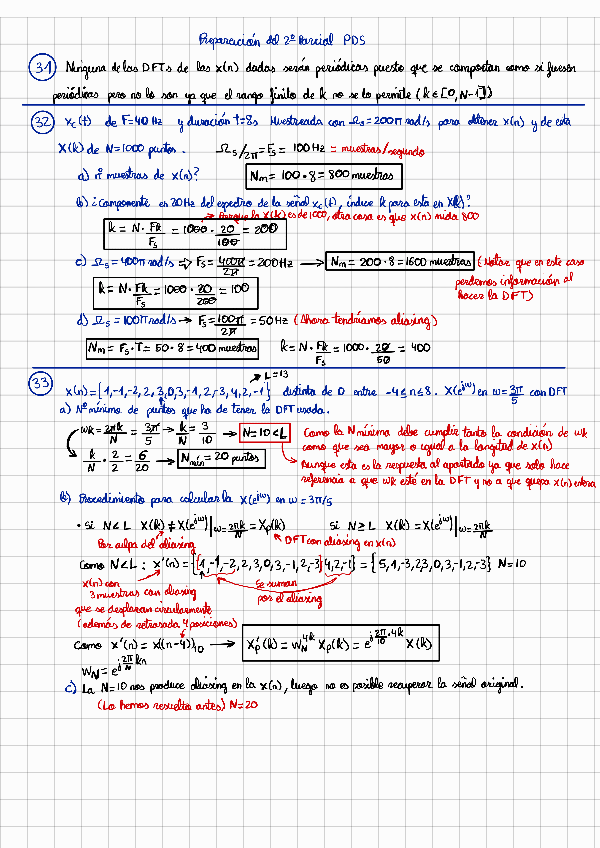 Preparación del 2º Parcial PDS
31 Ninguna de las DFTs de las x(n) dadas serán periódicas puesto que se comportan como si fuesen
periódicas pero no lo son ya que el rango finito de k no se lo permite (k∈[0, N-1])
32 xc(t) de F=40 Hz y duración t=8s Muestreada con Ωs=200π rad/s para obtener x(n) y de esta
X(k) de N=1000 puntos. Ωs/2π = Fs = 100 Hz = muestras/segundo
a) nº muestras de x(n)? Nm = 100·8 = 800 muestras
b) ¿Componente en 20Hz del espectro de la señal xc(t), índice k para esta en X(k)?
Porque la X(k) es de 1000, otra cosa es que x(n) mida 800
k = N·Fk/Fs = 1000·20/100 = 200
c) Ωs = 400π rad/s => Fs = 400π/2π = 200Hz → Nm = 200·8 = 1600 muestras (Notar que en este caso
perdemos información al
hacer la DFT)
k = N·Fk/Fs = 1000·20/200 = 100
d) Ωs = 100π rad/s → Fs = 100π/2π = 50Hz (Ahora tendríamos aliasing)
Nm = Fs·T = 50·8 = 400 muestras k = N·Fk/Fs = 1000·20/50 = 400
33 L=13
x(n) = {1,-1,-2,2,3,0,3,-1,2,-3,4,2,-1} distinta de 0 entre -4≤n≤8. X(e^jω) en ω=3π/5 con DFT
a) Nº mínimo de puntos que ha de tener la DFT usada.
ωk = 2πk/N = 3π/5 → k/N = 3/10 → N=10<L Como la N mínima debe cumplir tanto la condición de ωk
como que sea mayor o igual a la longitud de x(n)
k/N · 2/2 = 6/20 → Nmín = 20 puntos Aunque esta es la respuesta al apartado ya que solo hace
referencia a que ωk esté en la DFT y no a que quepa x(n) entera
b) Procedimiento para calcular la X(e^jω) en ω = 3π/5
• Si N<L X(k) ≠ X(e^jω)|ω=2πk/N = Xp(k) Si N≥L X(k) = X(e^jω)|ω=2πk/N
Por culpa del aliasing DFT con aliasing en x(n)
Como N<L: x'(n) = {1,-1,-2,2,3,0,3,-1,2,-3|4,2,-1} = {5,1,-3,2,3,0,3,-1,2,-3} N=10
x(n) con
3 muestras con aliasing
que se desplazan circularmente
(además de retrasada 4 posiciones)
Se suman
por el aliasing
Como x'(n) = x((n-4))10 → X'p(k) = WN^4k Xp(k) = e^j2π/10·4k X(k)
WN = e^j2π/N kn
c) La N=10 nos produce aliasing en la x(n), luego no es posible recuperar la señal original.
(Lo hemos resuelto antes) N=20